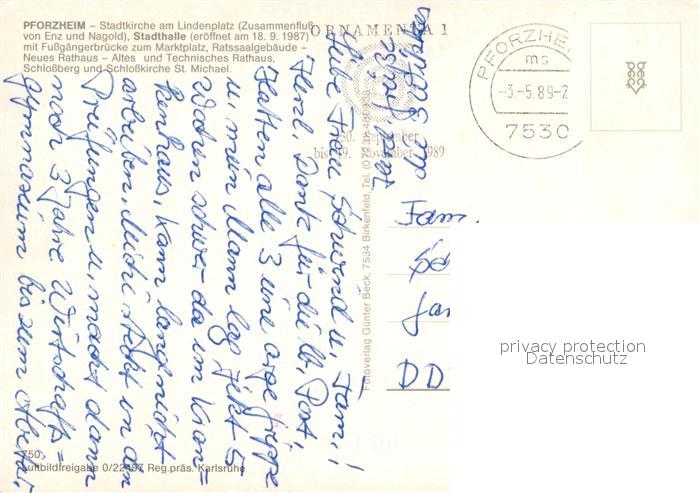 PFORZHEIM – Stadtkirche am Lindenplatz (Zusammenfluß
von Enz und Nagold), Stadthalle (eröffnet am 18. 9. 1987)
mit Fußgängerbrücke zum Marktplatz, Ratssaalgebäude –
Neues Rathaus – Altes und Technisches Rathaus,
Schloßberg und Schloßkirche St. Michael.
ORNAMENTA 1
30. September
bis 19. November 1989
PFORZHEI
ms
-3.-5.89-2
7530
beck
Liebe Frau Schwind u. Fam.!
Herzl Dank für die lb. Post,
Hatten alle 3 eine arge Grippe
u. mein Mann lag jetzt 5
Wochen schwer da im Kran=
kenhaus, kann lang nicht
arbeiten. Michi steht in den
Prüfungen u. macht dann
noch 3 Jahre Wirtschafts=
gymnasium bis zum Abitur.
Fotoverlag Günter Beck, 7534 Birkenfeld, Tel.
Fam.
DD
privacy protection
Datenschutz
750
Luftbildfreigabe 0/22497 Reg.präs. Karlsruhe